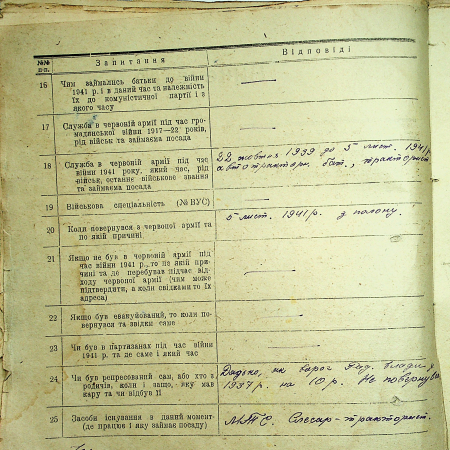 №№ п.п. Запитання Відповіді
16 Чим займались батьки до війни
1941 р. і в даний час та належність
їх до комуністичної партії і з
якого часу
17 Служба в червоній армії під час гро-
мадянської війни 1917—22 років,
рід військ та займаєма посада
18 Служба в червоній армії під час
війни 1941 року, який час, рід
військ, останнє військове звання
та займаєма посада
22 жовтня 1939 до 5 лист. 1941 р.
автотрактор. бат., тракторист
19 Військова спеціальність (№ ВУС)
20 Коли повернувся з червоної армії та
по якій причині
5 лист. 1941 р. з полону.
21 Якщо не був в червоній армії під
час війни 1941 р., то по якій при-
чині та де перебував підчас від-
ходу червоної армії (чим може
підтвердити, а коли свідками то їх
адреса)
22 Якщо був евакуйований, то коли по-
вернувся та звідки саме
23 Чи був в партизанах під час війни
1941 р. та де саме і який час
24 Чи був репресований сам, або хто з
родичів, коли і защо, яку мав
кару та чи відбув її
Дядіко, як ворог влади у
1937 р. на 10 р. Не повернувся
25 Засоби існування в даний момент
(де працює і яку займає посаду)
МТС. Слесар-тракторист.